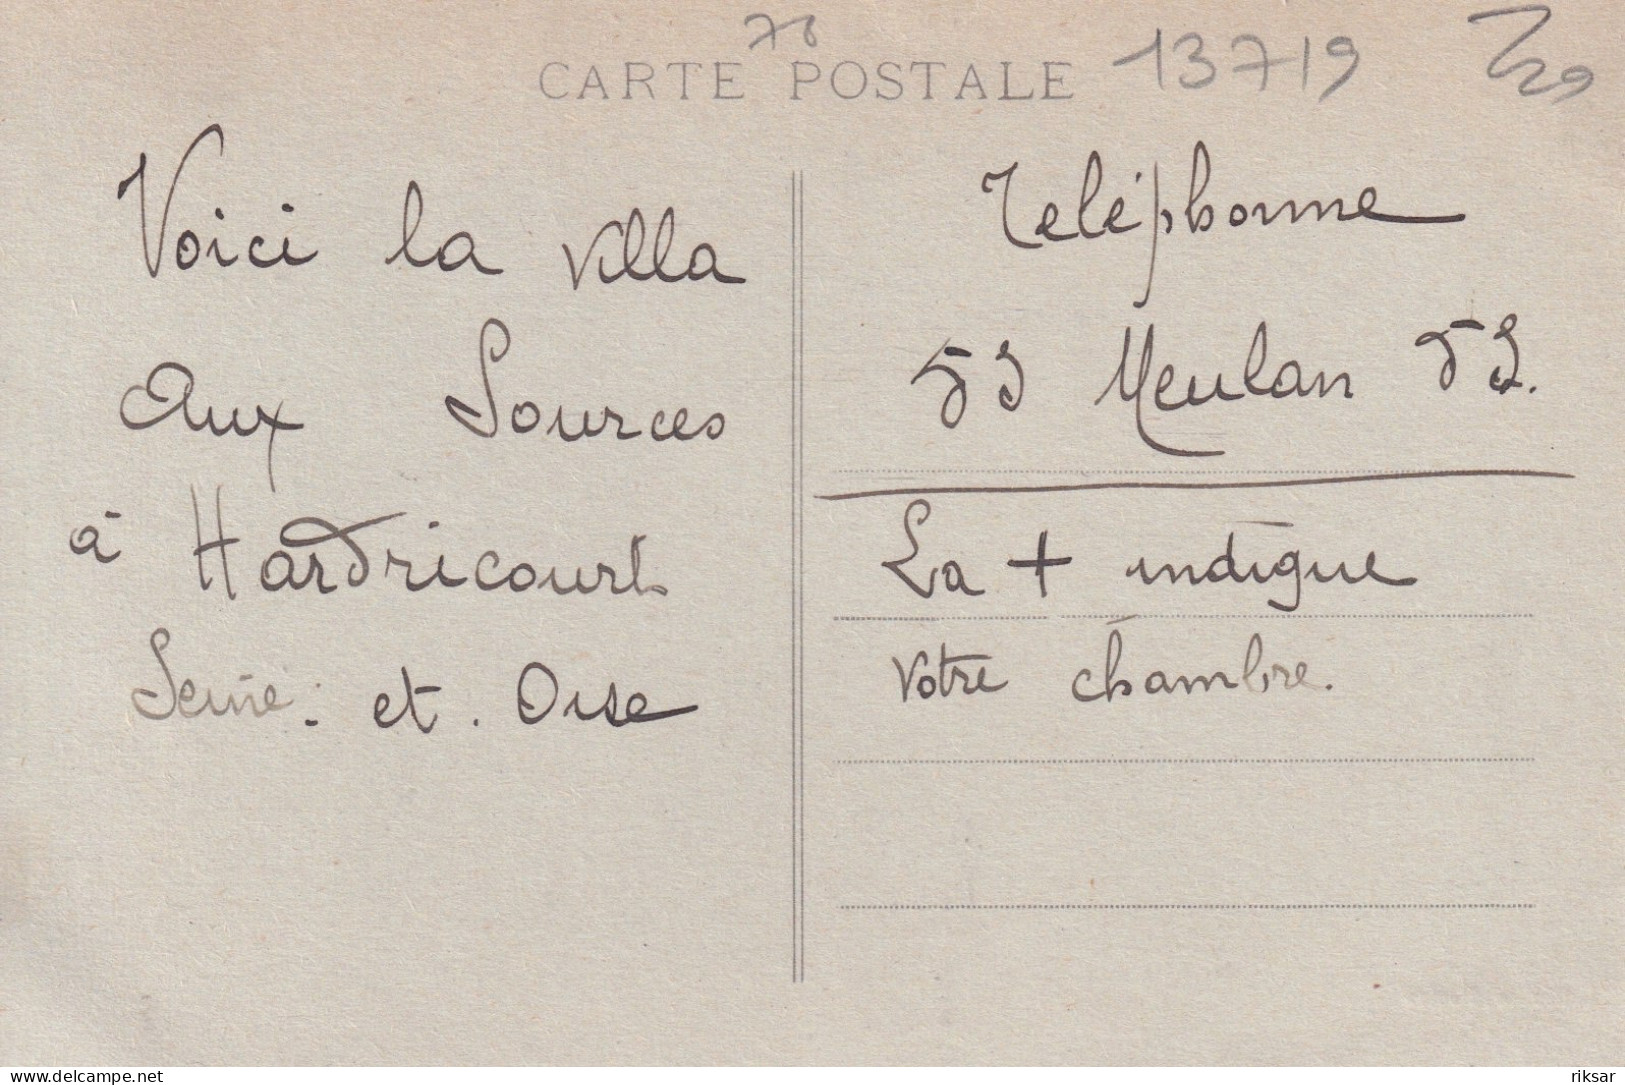 78
CARTE POSTALE
13719
Voici la villa
aux Sources
à Hardricourt
Seine. et. Oise
Teléphonne
53 Meulan 53.
La + indique
votre chambre.
www.delcampe.net
riksar